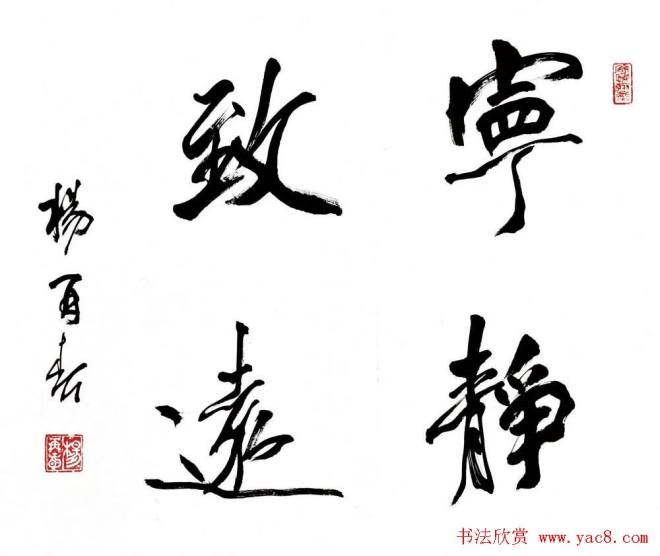 寧靜
致遠
楊再春
书法欣赏 www.yac8.com